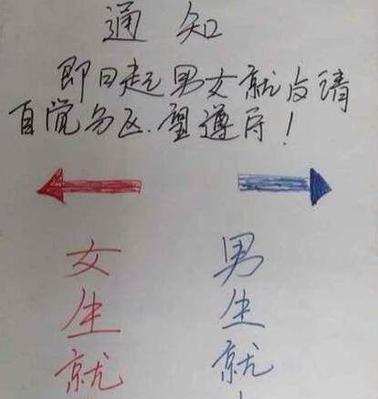 通知
即日起男女就请
自觉分区.望遵守!
女生就 男生就